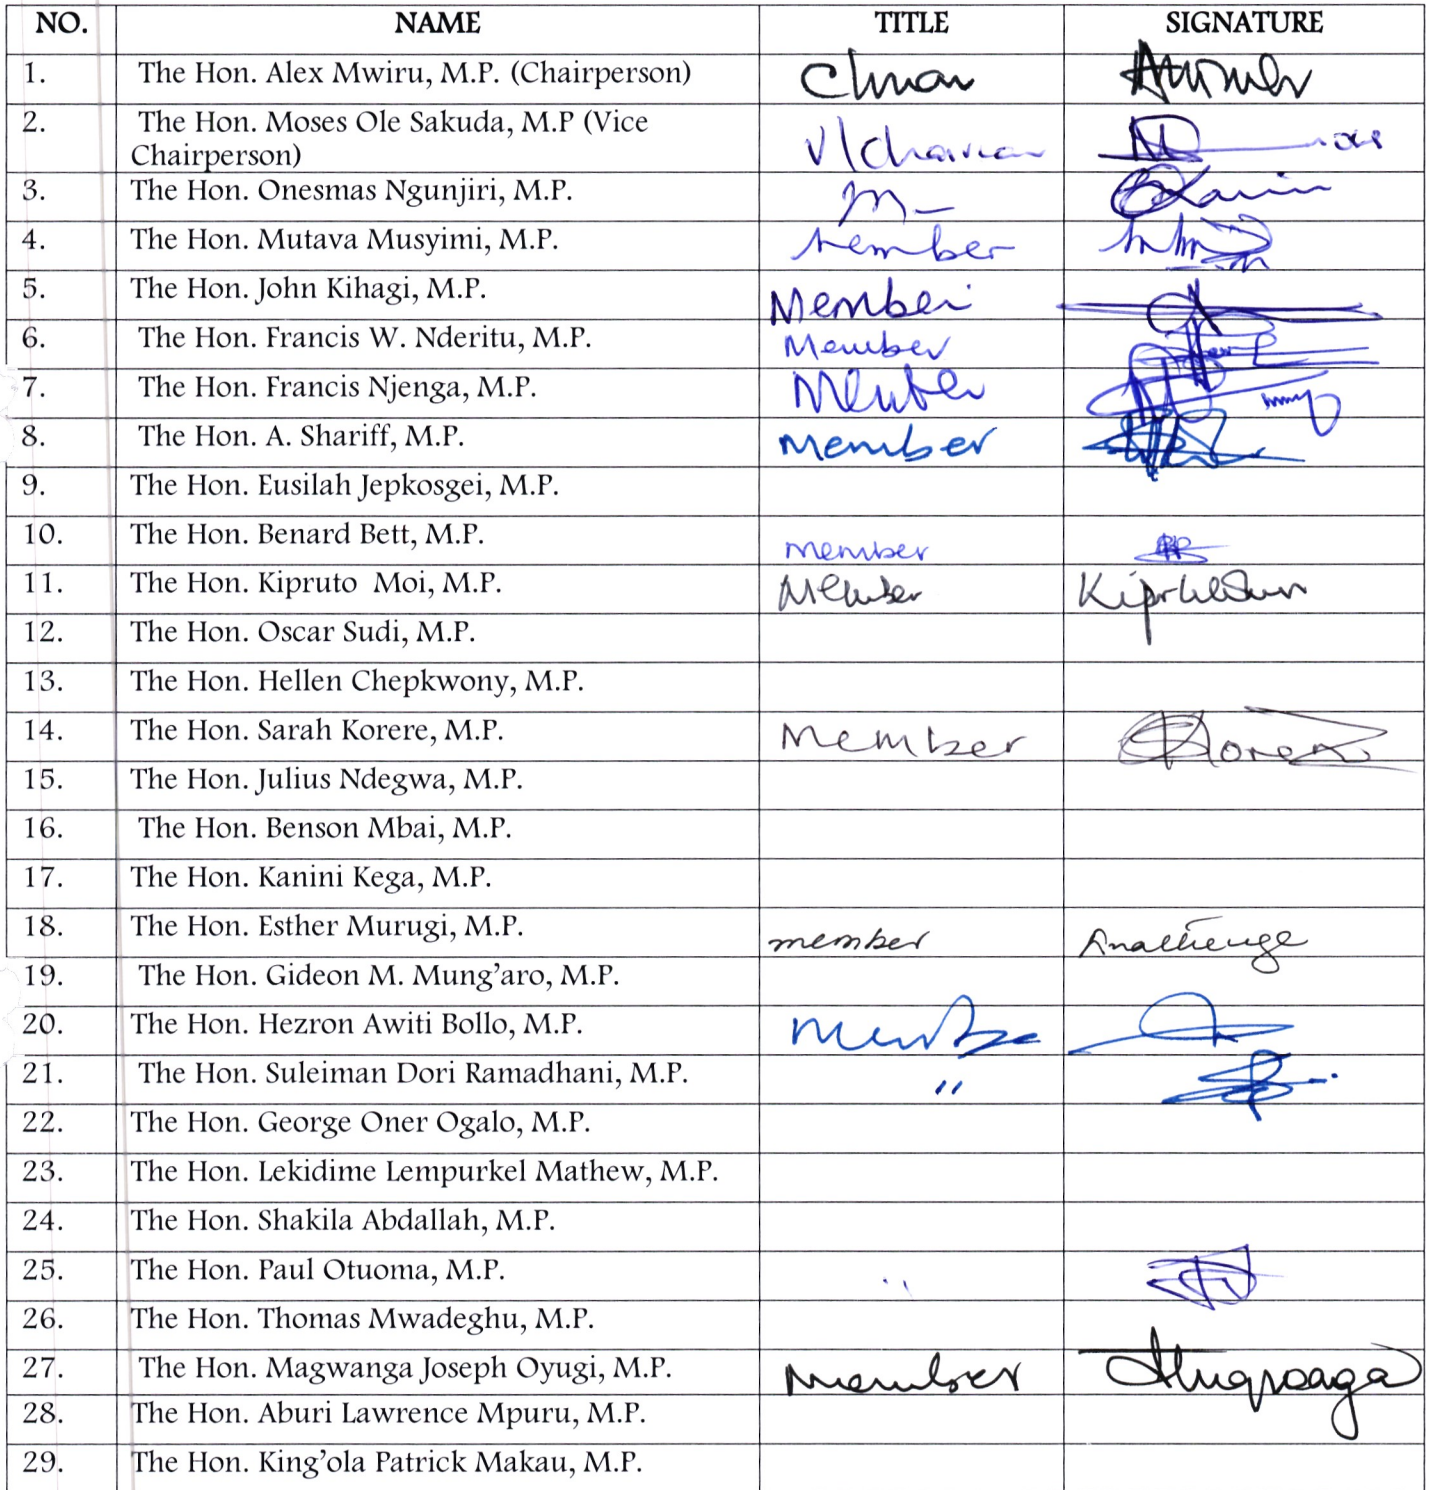 NO. NAME TITLE SIGNATURE
1. The Hon. Alex Mwiru, M.P. (Chairperson)
2. The Hon. Moses Ole Sakuda, M.P (Vice
Chairperson) V/Chairman
3. The Hon. Onesmas Ngunjiri, M.P. M-
4. The Hon. Mutava Musyimi, M.P. Member
5. The Hon. John Kihagi, M.P. Member
6. The Hon. Francis W. Nderitu, M.P. Member
7. The Hon. Francis Njenga, M.P. Member
8. The Hon. A. Shariff, M.P. Member
9. The Hon. Eusilah Jepkosgei, M.P.
10. The Hon. Benard Bett, M.P. member
11. The Hon. Kipruto Moi, M.P. Member
12. The Hon. Oscar Sudi, M.P.
13. The Hon. Hellen Chepkwony, M.P.
14. The Hon. Sarah Korere, M.P. Member
15. The Hon. Julius Ndegwa, M.P.
16. The Hon. Benson Mbai, M.P.
17. The Hon. Kanini Kega, M.P.
18. The Hon. Esther Murugi, M.P. member
19. The Hon. Gideon M. Mung'aro, M.P.
20. The Hon. Hezron Awiti Bollo, M.P.
21. The Hon. Suleiman Dori Ramadhani, M.P. "
22. The Hon. George Oner Ogalo, M.P.
23. The Hon. Lekidime Lempurkel Mathew, M.P.
24. The Hon. Shakila Abdallah, M.P.
25. The Hon. Paul Otuoma, M.P. "
26. The Hon. Thomas Mwadeghu, M.P.
27. The Hon. Magwanga Joseph Oyugi, M.P. member
28. The Hon. Aburi Lawrence Mpuru, M.P.
29. The Hon. King'ola Patrick Makau, M.P.